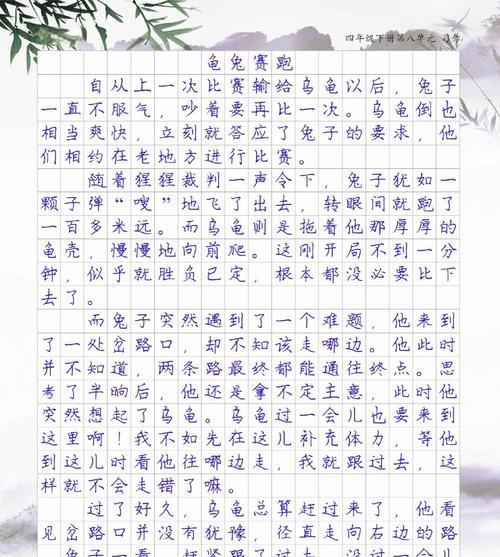 四年级下册第八单元 习作
龟兔赛跑
自从上一次比赛输给乌龟以后，兔子
一直不服气，吵着要再比一次。乌龟倒也
相当爽快，立刻就答应了兔子的要求，他
们相约在老地方进行比赛。
随着猩猩裁判一声令下，兔子犹如一
颗子弹“嗖”地飞了出去，转眼间就跑了
一百多米远。而乌龟则是拖着他那厚厚的
龟壳，慢慢地向前爬。这刚开局不到一分
钟，似乎就胜负已定，根本都没必要比下
去了。
而兔子突然遇到了一个难题，他来到
了一处岔路口，却不知该走哪边。他此时
并不知道，两条路最终都能通往终点。思
考了半晌后，他还是拿不定主意，此时他
突然想起了乌龟。乌龟过一会儿也要来到
这里啊！我不如先在这儿补充体力，等他
到这儿时看他往哪边走，我就跟过去，这
样就不会走错了嘛。
过了好久，乌龟总算赶过来了，他看
见岔路口并没有犹豫，径直走向右边的路
兔子一看
没过一会儿